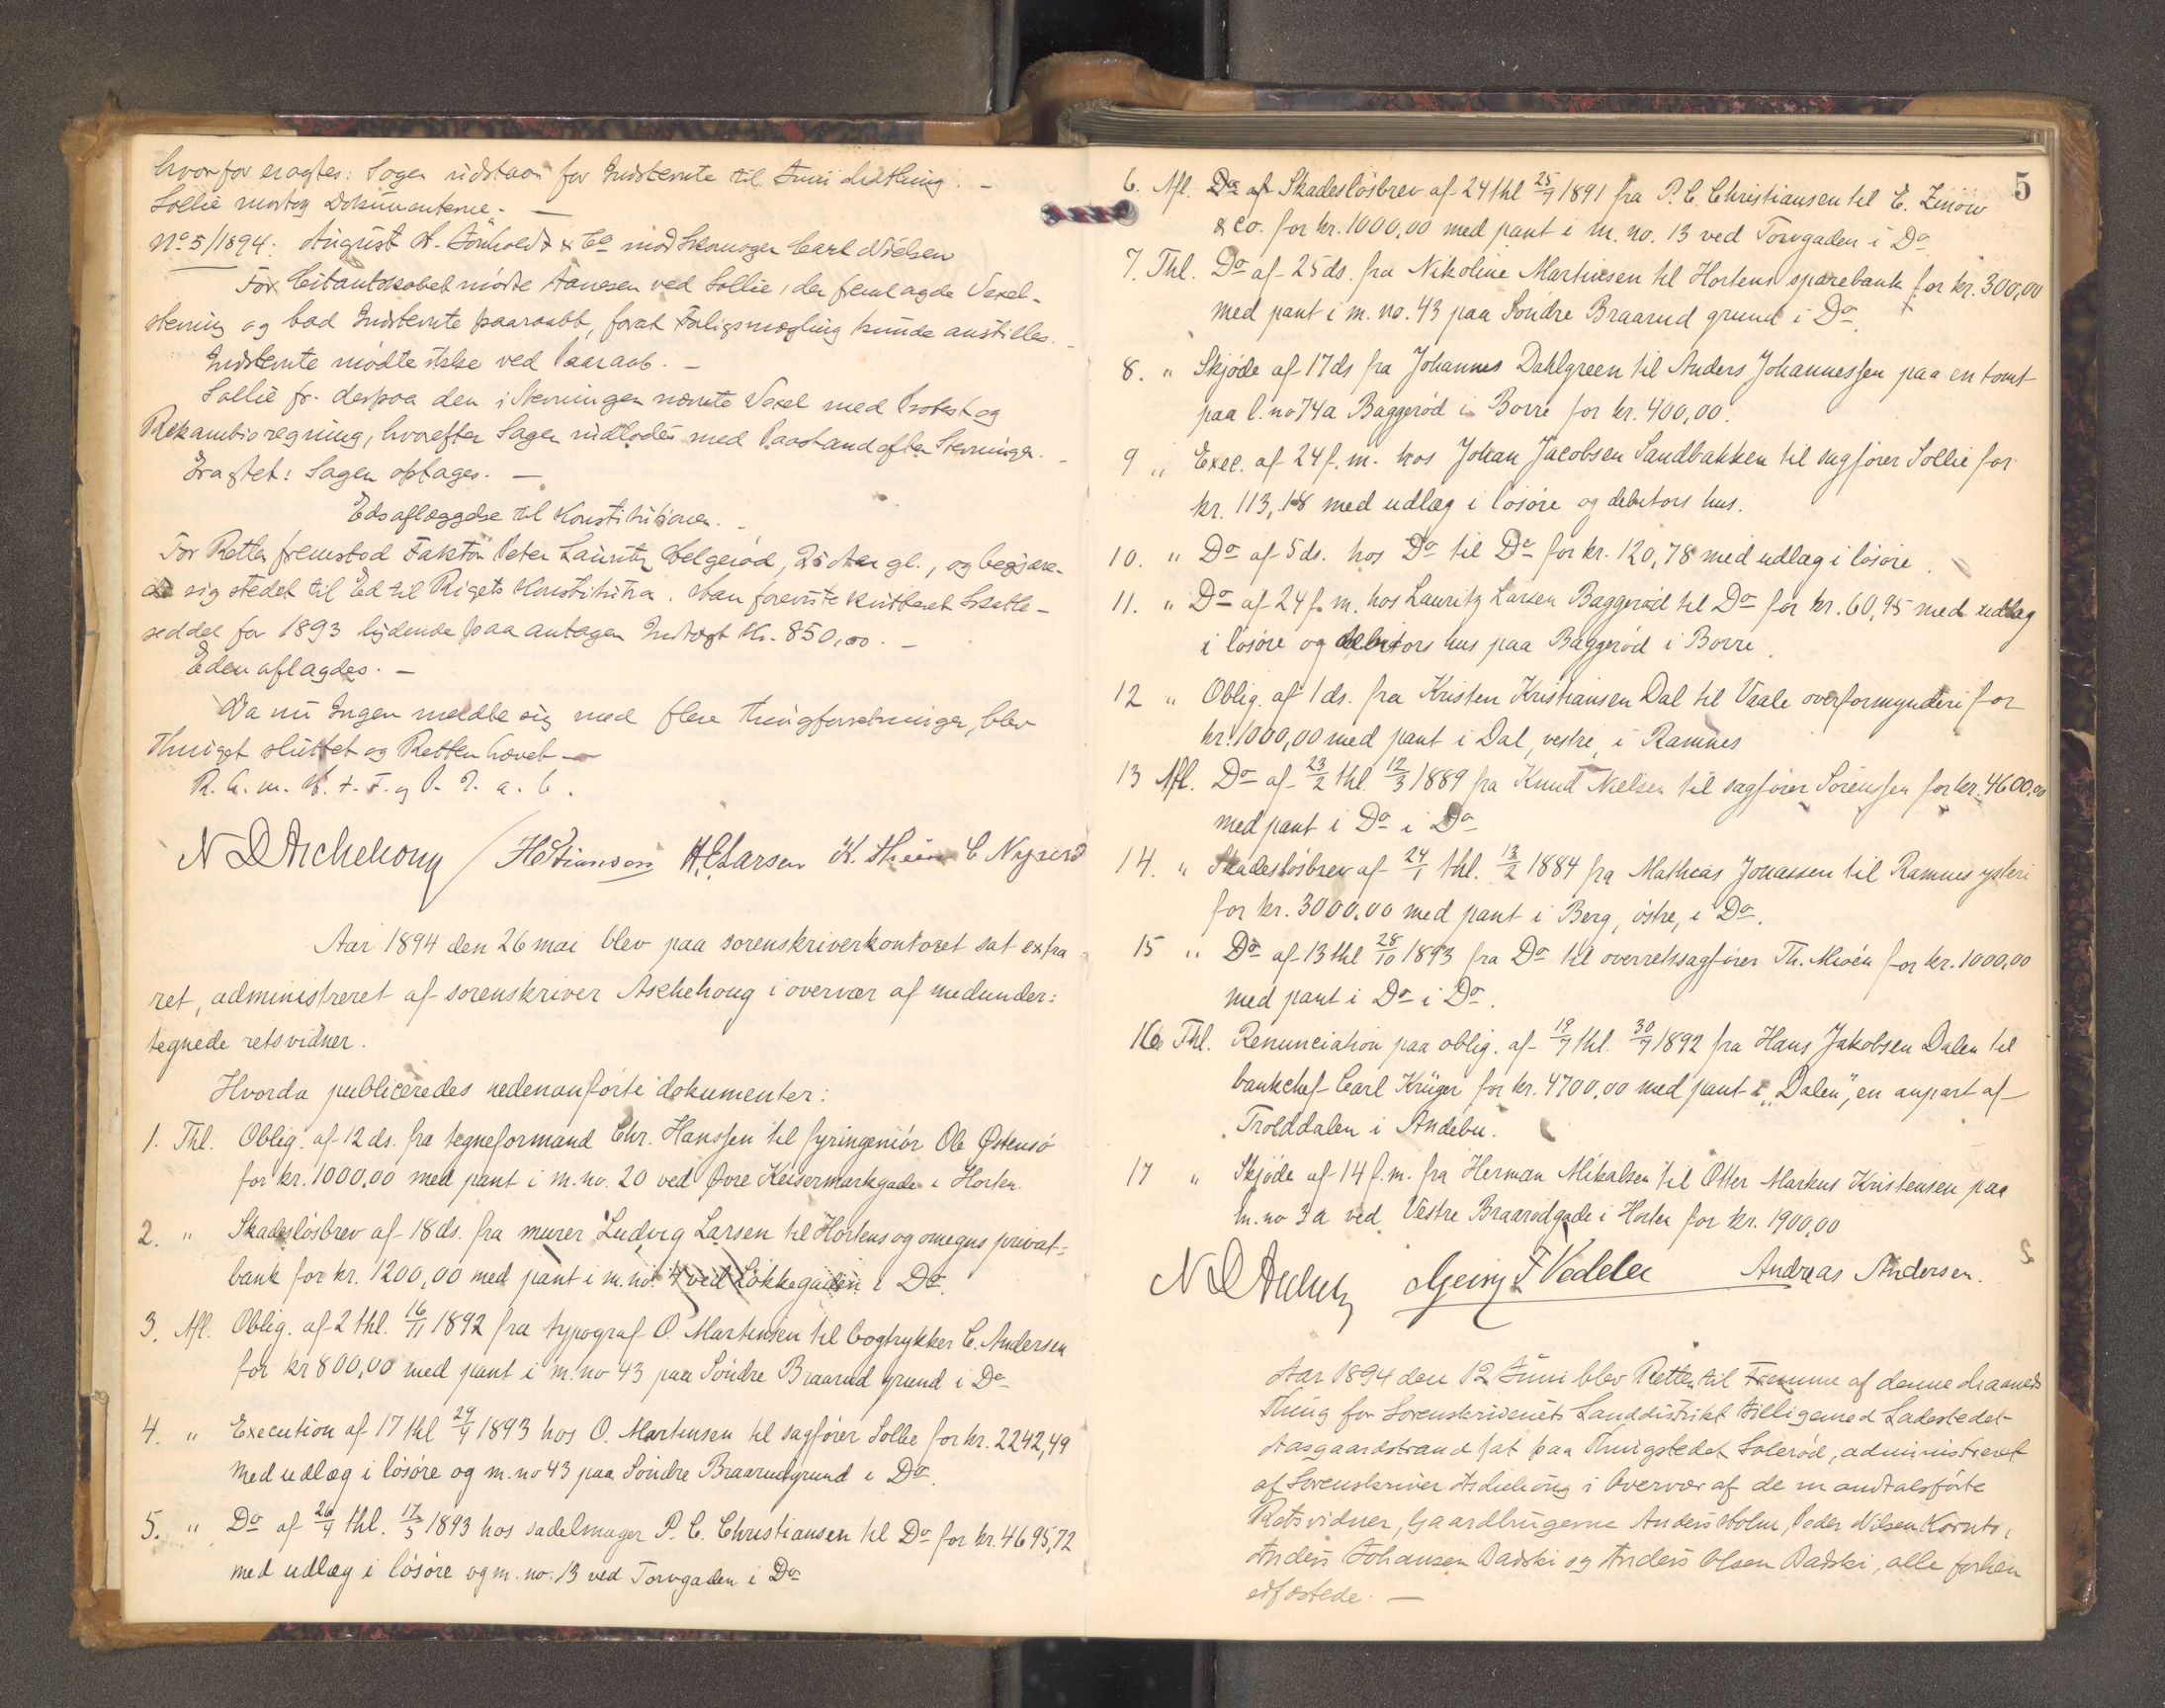 hvorfor eragtes: Sagen udstaar for Indstevnte til Juni
Sollie modtog Dokumenterne. —
No 5/1894. August & Co mod Skomager Carl Nielsen
For Citantskabet mødte Aanesen ved Sollie, der fremlagde Vexel-
stevning og bad Indstevnte paaraabt, forat Forligsmægling kunde anstilles. —
Indstevnte mødte ikke ved Paaraab. —
Sollie fr. derpaa den i Stevningen nævnte Vexel med Protest og
Rekambioregning, hvorefter Sagen indlodes med Paastand efter Stevningen. —
Eragtet: Sagen optages. —
Edsaflæggelse til Konstitutionen. —
For Retten fremstod Faktor Peter Lauritz Helgerød, 25 Aar gl., og begjære-
de sig stedet til Ed til Rigets Konstitution. Han foreviste kvitteret Skatte-
seddel for 1893 lydende paa antagen Indtægt Kr. 850,00. —
Eden aflagdes. —
Da nu Ingen meldte sig med flere Thingforretninger, blev
Thinget sluttet og Retten hævet —
N D Aschehoug / H E Larsen K. C Nyrerød
Aar 1894 den 26 mai blev paa sorenskriverkontoret sat extra
ret, administreret af sorenskriver Aschehoug i overvær af medunder:
tegnede retsvidner.
Hvorda publiceredes nedenanførte dokumenter:
1. Thl. Oblig. af 12 ds. fra tegneformand Chr. Hanssen til fyringeniør Ole Østensø
for kr. 1000,00 med pant i m. no. 20 ved Øvre Keisermarkgade i Horten.
2. " Skadesløsbrev af 18 ds. fra murer Ludvig Larsen til Hortens og omegns privat-
bank for kr. 1200,00 med pant i m. no. 4 ved Løkkegaden i Do.
3. Afl. Oblig. af 2 thl. 16/11 1892 fra typograf O. Martinsen til bogtrykker C. Andersen
for kr 800,00 med pant i m. no 43 paa Søndre Braarud grund i Do
4. " Execution af 17 thl 29/4 1893 hos O. Martinsen til sagfører Sollie for kr. 2242,49
med udlæg i løsøre og m. no 43 paa Søndre Braarudgrund i Do.
5. " Do af 26/4 thl. 17/5 1893 hos sadelmager P. C. Christiansen til Do for kr. 4695,72
med udlæg i løsøre og m. no. 13 ved Torvgaden i Do
5
6. Afl. Do af Skadesløsbrev af 24 thl 25/7 1891 fra P. C. Christiansen til E. Zinow
& Co. for kr. 1000,00 med pant i m. no. 13 ved Torvgaden i Do
7. Thl. Do af 25 ds. fra Nikoline Martinsen til Hortens sparebank for kr. 300,00
med pant i m. no. 43 paa Søndre Braarud grund i Do.
8. " Skjøde af 17 ds fra Johannes Dahlgreen til Anders Johannessen paa en tomt
paa l. no 74a Baggerød i Borre for kr. 400,00.
9 " Exec. af 24 f. m. hos Johan Jacobsen Sandbakken til sagfører Sollie for
kr. 113,18 med udlæg i løsøre og debitors hus.
10. " Do af 5 ds. hos Do til Do for kr. 120,78 med udlæg i løsøre.
11. " Do af 24 f. m. hos Lauritz Larsen Baggerød til Do for kr. 60,95 med udlæg
i løsøre og debitors hus paa Baggerød i Borre.
12 " Oblig. af 1 ds. fra Kristen Kristiansen Dal til Vaale overformynderi for
kr. 1000,00 med pant i Dal, vestre, i Ramnes
13 Afl. Do af 23/2 thl. 12/3 1889 fra Knud Nielsen til sagfører Sørenssen for kr. 4600,00
med pant i Do i Do
14. " Skadesløsbrev af 24/1 thl. 13/2 1884 fra Mathias Jonassen til Ramnes ysteri
for kr. 3000,00 med pant i Berg, østre, i Do.
15 " Do af 13 thl 28/10 1893 fra Do til overretssagfører Th. Moén for kr. 1000,00
med pant i Do i Do.
16 Thl. Renunciation paa oblig. af 19/7 thl. 30/7 1892 fra Hans Jakobsen Dalen til
bankchef Carl Krüger for kr. 4700,00 med pant i „Dalen", en anpart af
Trolddalen i Andebu.
17 " Skjøde af 14 f. m. fra Herman Mikalsen til Otter Markus Kristensen paa
m. no 3a ved Vestre Braarudgade i Horten for kr. 1900,00
N D Aschehoug Georg F Vedeler Andreas Andersen.
Aar 1894 den 12 Juni blev Retten til Fremme af denne Maaneds
Thing for Sorenskriveriets Landdistrikt tilligemed Ladestedet
Aasgaardstrand sat paa Thingstedet Solerød, administreret
af Sorenskriver Aschehoug i Overvær af de mandtalsførte
Retsvidner, Gaardbrugerne Anders Holm, Peder Nilsen
Anders Johansen Dadski og Anders Olsen Dadski, alle forhen
edfæstede. —